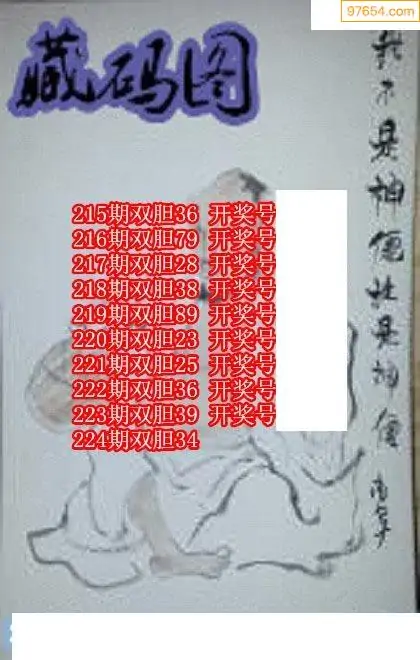 97654.com
藏码图
215期双胆36 开奖号
216期双胆79 开奖号
217期双胆28 开奖号
218期双胆38 开奖号
219期双胆89 开奖号
220期双胆23 开奖号
221期双胆25 开奖号
222期双胆36 开奖号
223期双胆39 开奖号
224期双胆34
不是神仙 是神仙